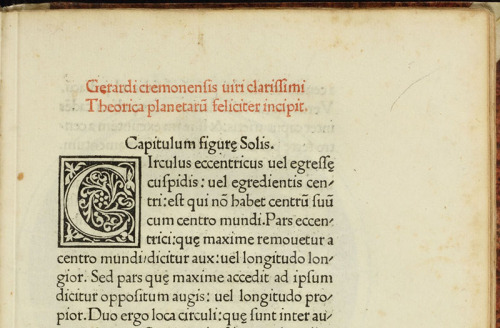 Gerardi cremonensis uiri clarissimi
Theorica planetarū feliciter incipit.
Capitulum figurę Solis.
CIrculus eccentricus uel egressę
cuspidis: uel egredientis cen⸗
tri: est qui nō habet centrū suū
cum centro mundi. Pars eccen⸗
trici: quę maxime remouetur a
centro mundi/dicitur aux: uel longitudo lon⸗
gior. Sed pars quę maxime accedit ad ipsum
dicitur oppositum augis: uel longitudo pro⸗
pior. Duo ergo loca circuli: quę sunt inter au⸗